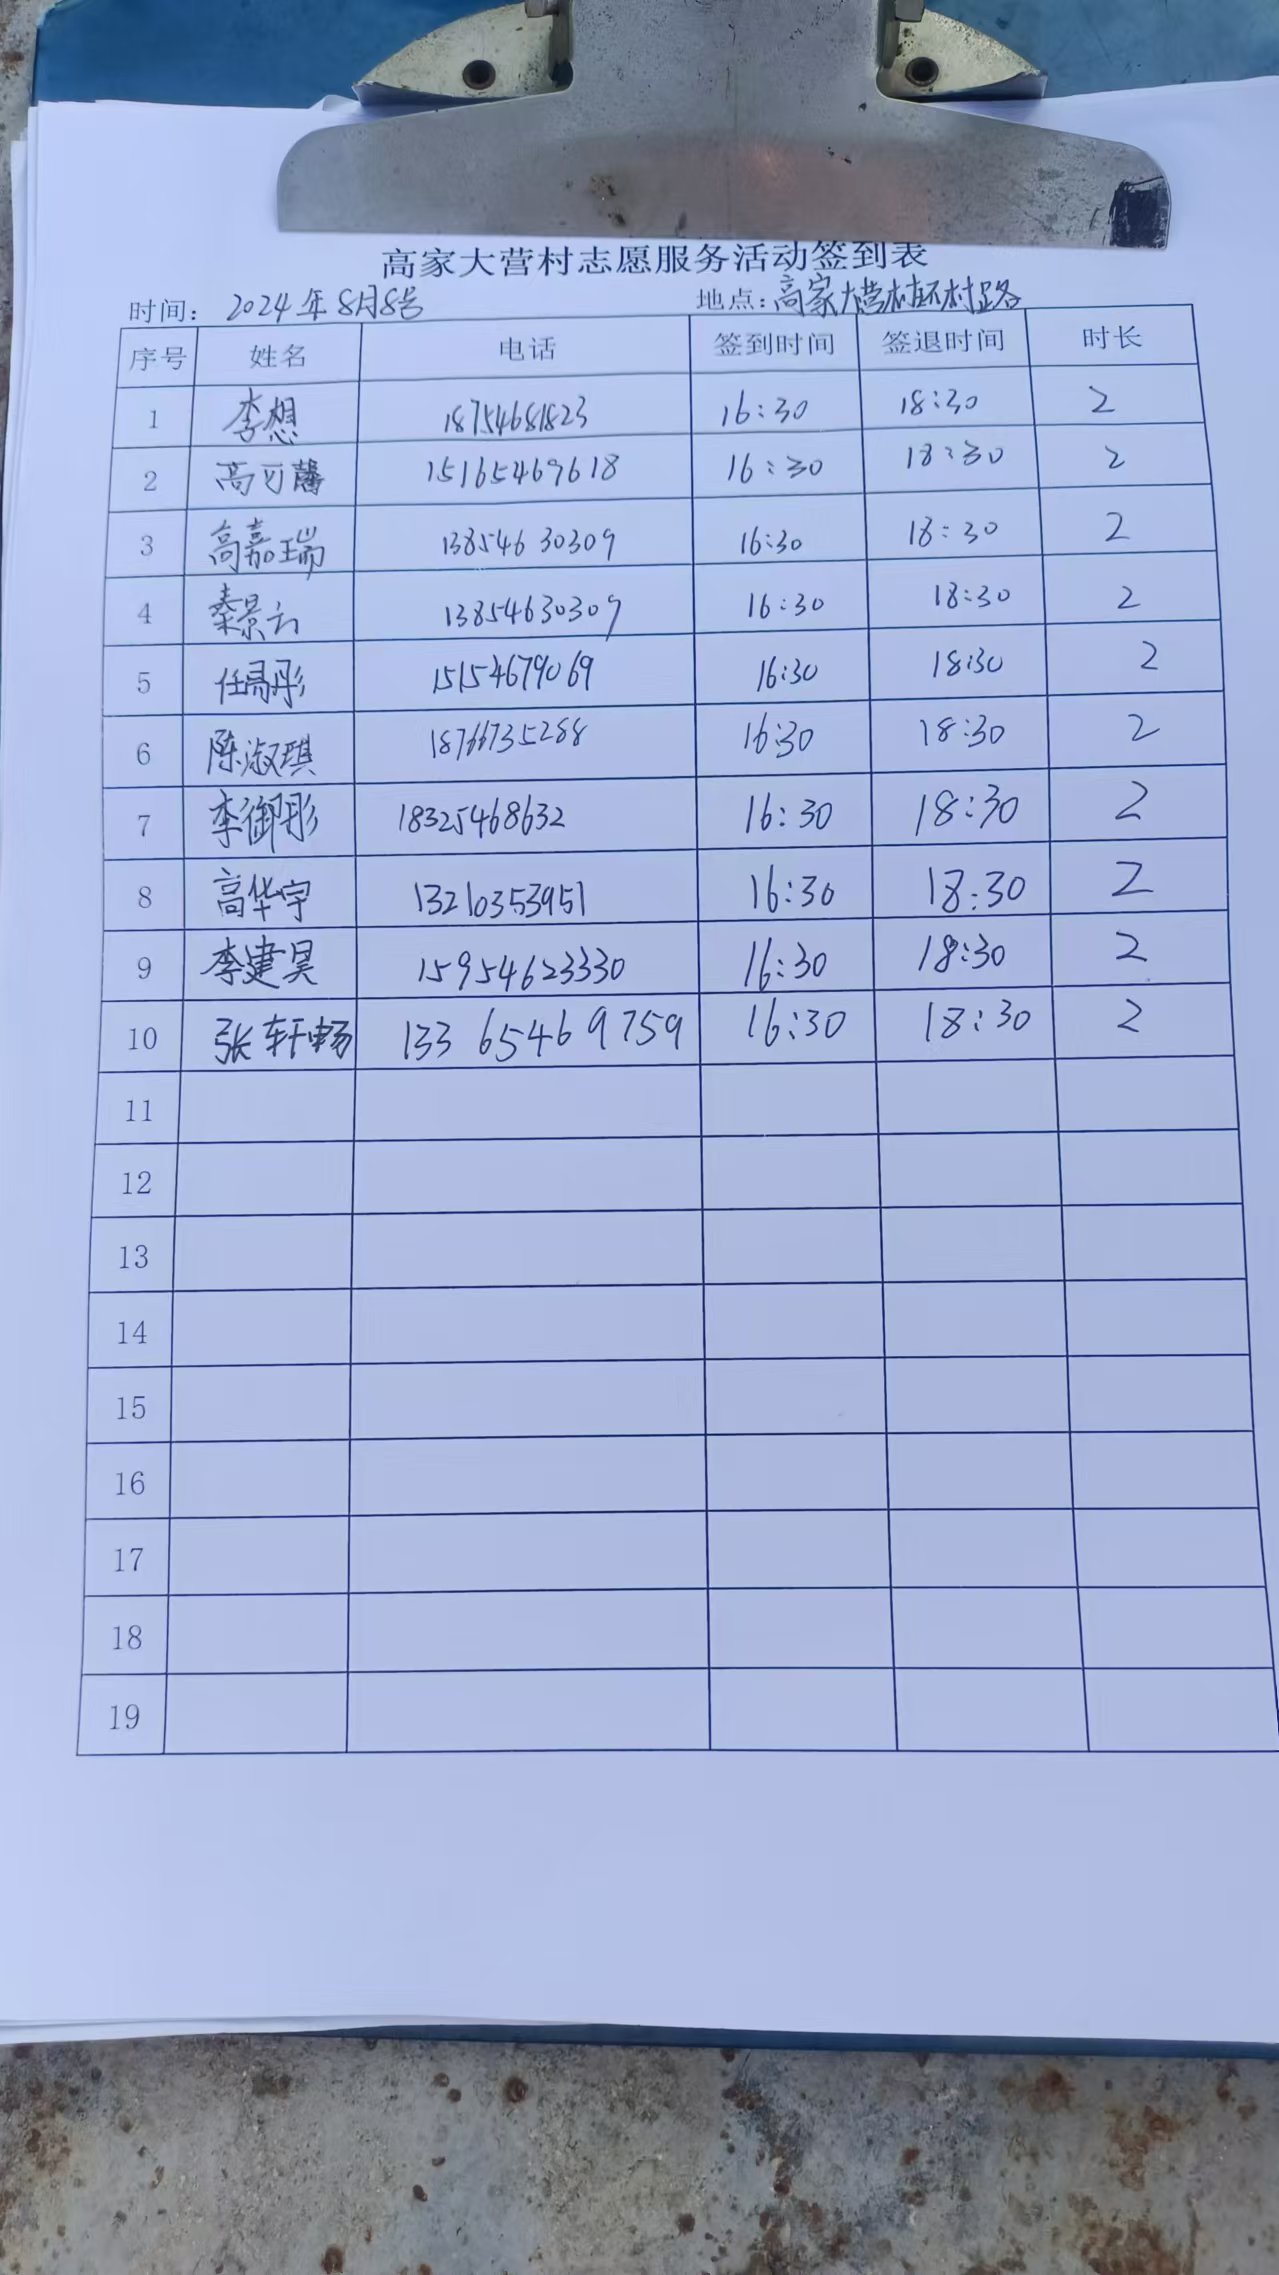 高家大营村志愿服务活动签到表
时间： 2024年8月8号 地点：高家大营村环村路
序号 姓名 电话 签到时间 签退时间 时长
1 李想 18754681823 16:30 18:30 2
2 高可馨 15165469618 16:30 18:30 2
3 高嘉瑞 13854630309 16:30 18:30 2
4 秦景云 13854630309 16:30 18:30 2
5 15154679069 16:30 18:30 2
6 陈淑琪 18766735288 16:30 18:30 2
7 李御彤 18325468632 16:30 18:30 2
8 高华宇 13210353951 16:30 18:30 2
9 李建昊 15954623330 16:30 18:30 2
10 张轩畅 13365469759 16:30 18:30 2
11
12
13
14
15
16
17
18
19